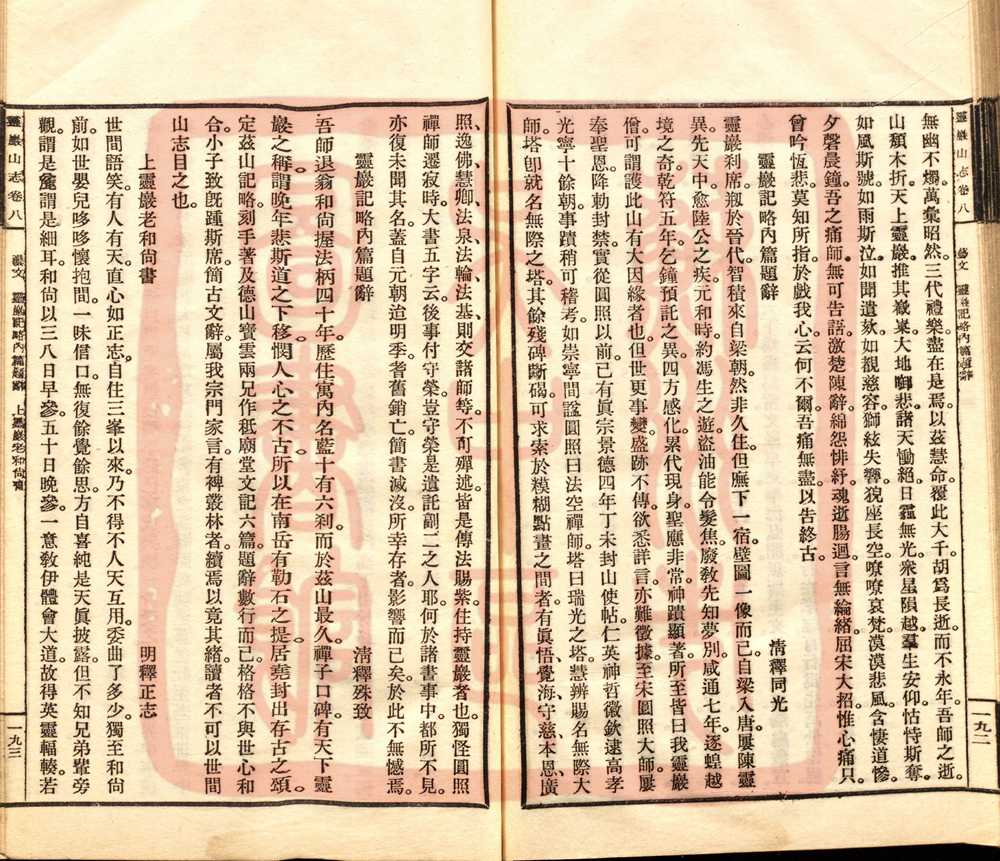 靈巖山志卷八
藝文
靈巖記略內篇題辭
一九二
無幽不燭。萬彙昭然。三代禮樂盡在是焉。以茲慧命覆此大千。胡爲長逝。而不永年。吾師之逝。
山頹木折。天上靈巖。推其嶽嶪。大地啣悲。諸天慟絕。日霾無光。衆星隕越。羣生安仰。怙恃斯奪。
如風斯號。如雨斯泣。如聞遺欬。如覩慈容。獅絃失響。猊座長空。嘹嘹哀梵。漠漠悲風。含悽道慘。
夕磬晨鐘。吾之痛師。無可告語。激楚陳辭。綿怨悱紓。魂逝腸迴。言無綸緒。屈宋大招。惟心痛只。
曾吟恆悲。莫知所指。於戲我心。云何不爾。吾痛無盡。以告終古。
靈巖記略內篇題辭
淸釋同光
靈巖剎席。剏於晉代。智積來自梁朝。然非久住。但廡下一宿。壁圖一像而已。自梁入唐。屢陳靈
異。先天中。愈陸公之疾。元和時。約馮生之遊。盜油能令髮焦。廢敎先知夢別。咸通七年。逐蝗越
境之奇。乾符五年。乞鐘預託之異。四方感化。累代現身。聖應非常。神蹟顯著。所至皆曰我靈巖
僧。可謂護此山有大因緣者也。但世更事變。盛跡不傳。欲悉詳言。亦難徵據。至宋圓照大師。屢
奉聖恩。降勅封禁。實從圓照以前。已有眞宗景德四年丁未封山使帖。仁英神哲徽欽。逮高孝
光寧十餘朝。事蹟稍可稽考。如崇寧間。諡圓照曰法空禪師。塔曰瑞光之塔。慧辨賜名無際大
師。塔卽就名無際之塔。其餘殘碑斷碣。可求索於糢糊點畫之間者。有眞悟覺海。守慈本恩。廣
照、逸佛、慧卿、法泉、法輪、法基、則交諸師等。不可殫述。皆是傳法賜紫住持靈巖者也。獨怪圓照
禪師遷寂時。大書五字云。後事付守榮。豈守榮是遺託副二之人耶。何於諸書事中。都所不見。
亦復未聞其名。蓋自元朝迨明季。耆舊銷亡。簡書減沒。所幸存者。影響而已矣。於此不無憾焉。
靈巖記略內篇題辭
淸釋殊致
吾師退翁和尙握法柄四十年。歷住寓內名藍十有六剎。而於茲山最久。禪子口碑。有天下靈
巖之稱。謂晚年悲斯道之下移。憫人心之不古。所以在南岳有勒石之提。居堯封出存古之頌。
定茲山記略。刻手著及德山寶雲兩兄作。祗廟堂文記六篇。題辭數行而已。格格不與世心和
合。小子致旣踵斯席。簡古文辭。屬我宗門家言。有裨叢林者。續焉以竟其緒。讀者不可以世間
山志目之也。
上靈巖老和尙書
明釋正志
世間語笑。有人有天。直心如正志。自住三峯以來。乃不得不人天互用。委曲了多少。獨至和尙
前。如世嬰兒。哆哆懷抱間。一昧信口。無復餘覺餘思。方自喜純是天眞披露。但不知兄弟輩旁
觀。謂是麤。謂是細耳。和尙以三八日早參。五十日晚參。一意敎伊體會大道。故得英靈輻輳。若
靈巖山志卷八
藝文
靈巖記略內篇題辭
上靈巖老和尙書
一九三